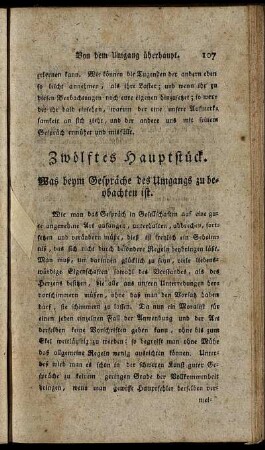 Von dem Umgang überhaupt. 107
gekommen kann. Wir können die Tugenden der andern eben
so leicht annehmen, als ihre Laster; und wenn ihr zu
diesen Beobachtungen noch eure eigenen hinzusetzet; so wer-
det ihr bald einsehen, warum der eine unsere Aufmerk-
samkeit an sich zieht, und der andere uns mit seinem
Gespräch ermüdet und mißfällt.
Zwölftes Hauptstück.
Was beym Gespräche des Umgangs zu be-
obachten ist.
Wie man das Gespräch in Gesellschaften auf eine gar
zu angenehme Art anfangen, unterhalten, abbrechen, fort-
setzen und verändern müsse, dieß ist freylich ein Geheim-
niß, das sich nicht durch hundert Regeln beybringen läßt.
Man muß, um darinnen glücklich zu seyn, viele liebens-
würdige Eigenschaften sowohl des Verstandes, als des
Herzens besitzen, die alle aus unsern Unterredungen her-
vorschimmern müssen, ohne daß man den Vorsatz haben
darf, sie schimmern zu lassen. Da nun ein Moralist für
einen jeden einzelnen Fall der Anwendung und der Art
derselben keine Vorschriften geben kann, ohne bis zum
Ekel weitläuftig zu werden; so begreift man ohne Mühe
daß allgemeine Regeln wenig ausrichten können. Unter-
deß wird man es schon in der schweren Kunst guter Ge-
spräche zu keinem geringen Grade der Vollkommenheit
bringen, wenn man gewisse Hauptfehler derselben ver-
mei-